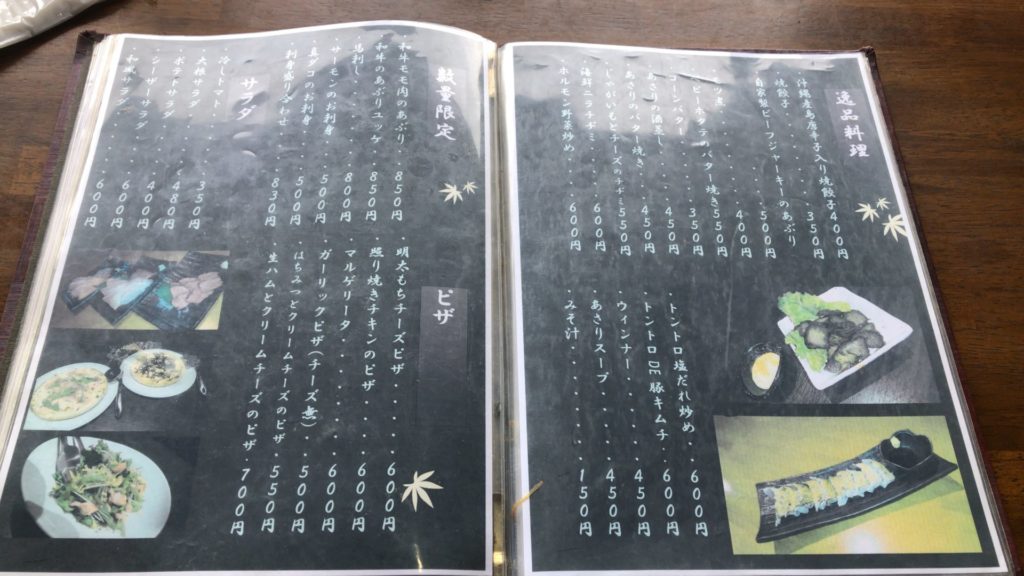 逸品料理
沖縄産島唐辛子入り焼餃子 400円
焼餃子 350円
自家製ビーフジャーキーのあぶり 500円
400円
バター焼き 550円
コーンバター 350円
あさり酒蒸し 450円
あさりのバター焼き 450円
じゃがいもとチーズのチヂミ 550円
海鮮ニラチヂミ 600円
ホルモン野菜炒め 600円
トントロ塩だれ炒め 600円
トントロDE豚キムチ 600円
ウィンナー 450円
あさりスープ 450円
みそ汁 150円
数量限定
和牛モモ肉のあぶり 850円
和牛のあぶりユッケ 850円
馬刺し 800円
サーモンのお刺身 500円
真ダコのお刺身 500円
お刺身盛り合せ 830円
サラダ
冷しトマト 350円
大根サラダ 480円
ポテトサラダ 400円
シーザーサラダ 600円
和風サラダ 600円
ピザ
明太もちチーズピザ 600円
照り焼きチキンのピザ 600円
マルゲリータ 600円
ガーリックピザ(チーズ無) 500円
はちみつとクリームチーズのピザ 550円
生ハムとクリームチーズのピザ 700円